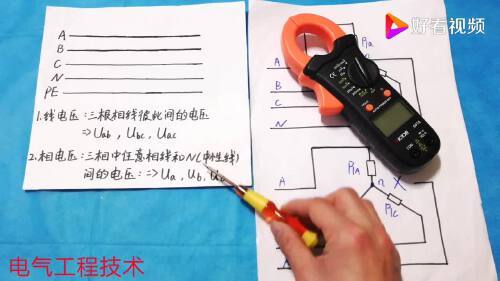 A
B
C
N
PE
1.线电压:三根相线彼此间的电压
⇒Uab, Ubc, Uac
2.相电压:三相中任意相线和N(中性线)
间的电压:⇒Ua, Ub, Uc
好看视频
RA
A
B
C
N
A
RA
n
X
RC
电气工程技术